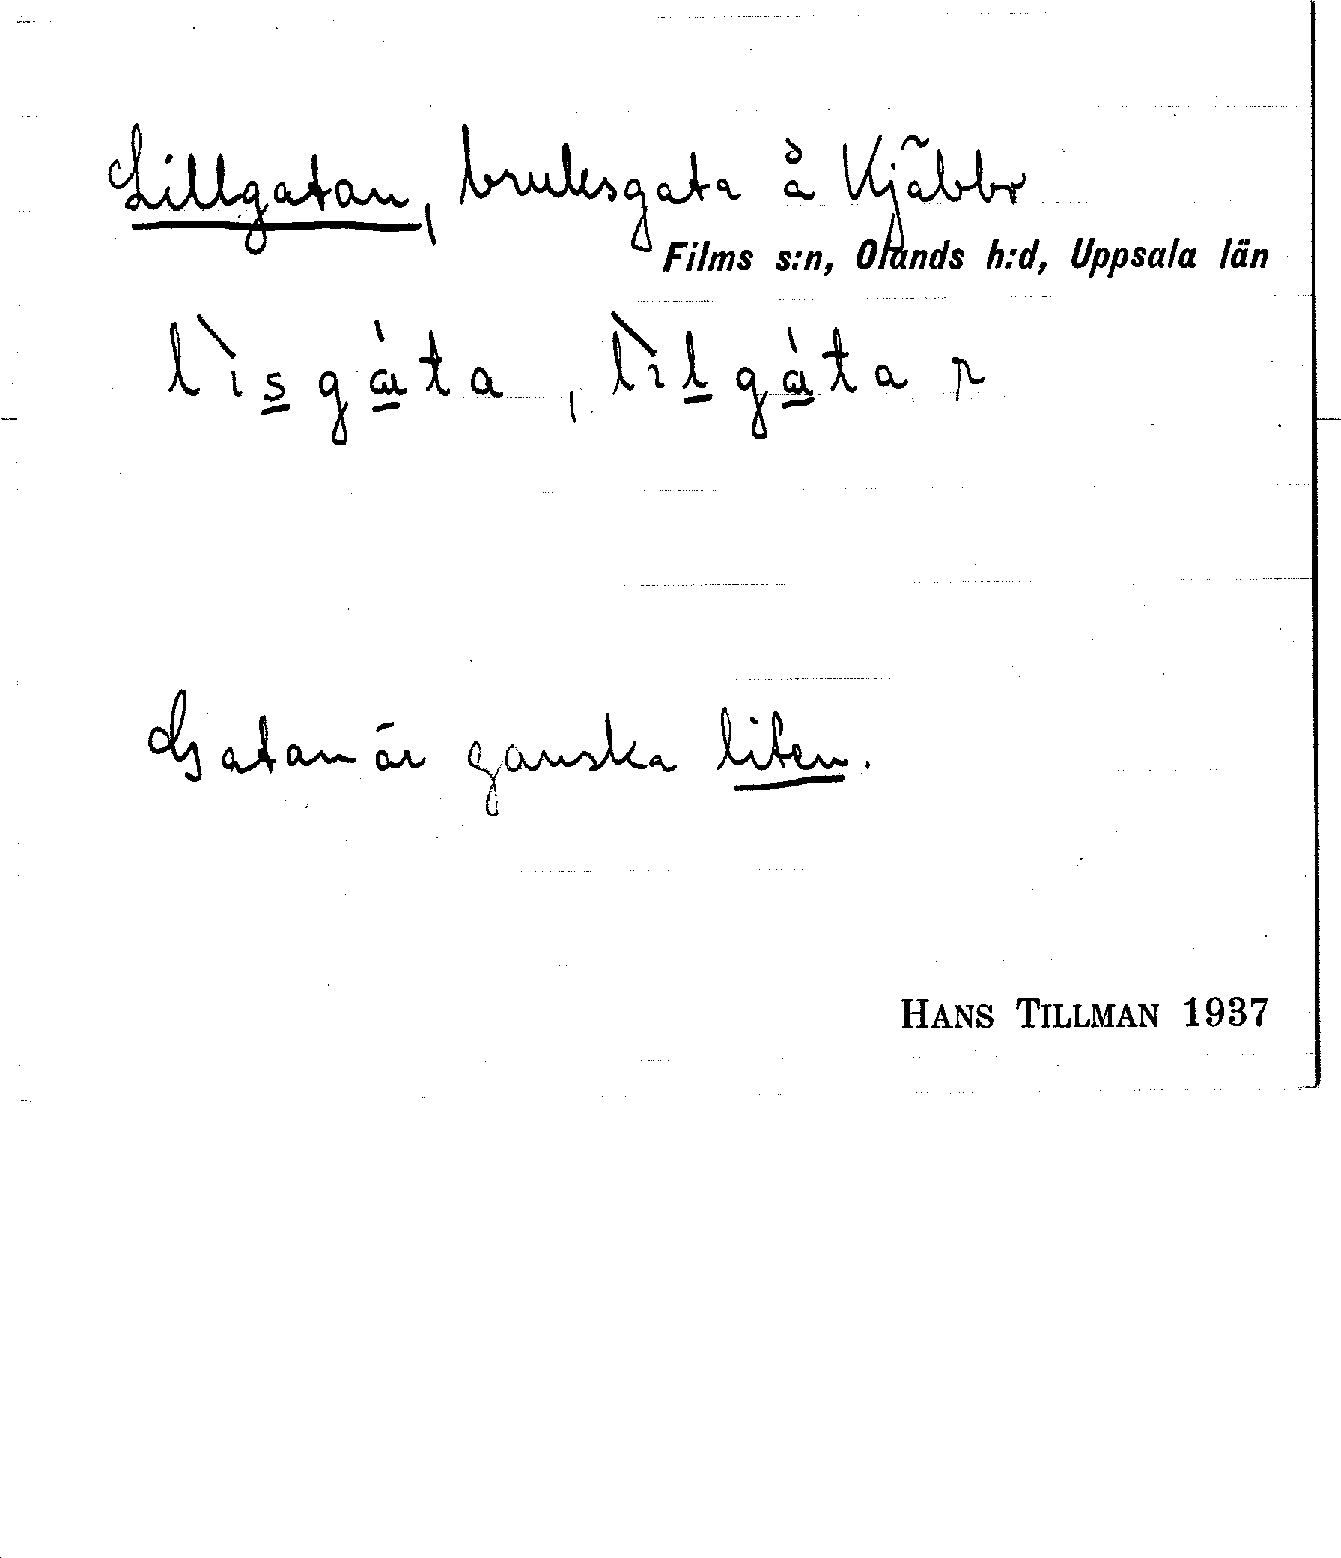 Lillgatan, bruksgata å Kjäbbr
Films s:n, Olands h:d, Uppsala län
lìsgàta, lìlgàta r
Gatan är ganska liten.
HANS TILLMAN 1937